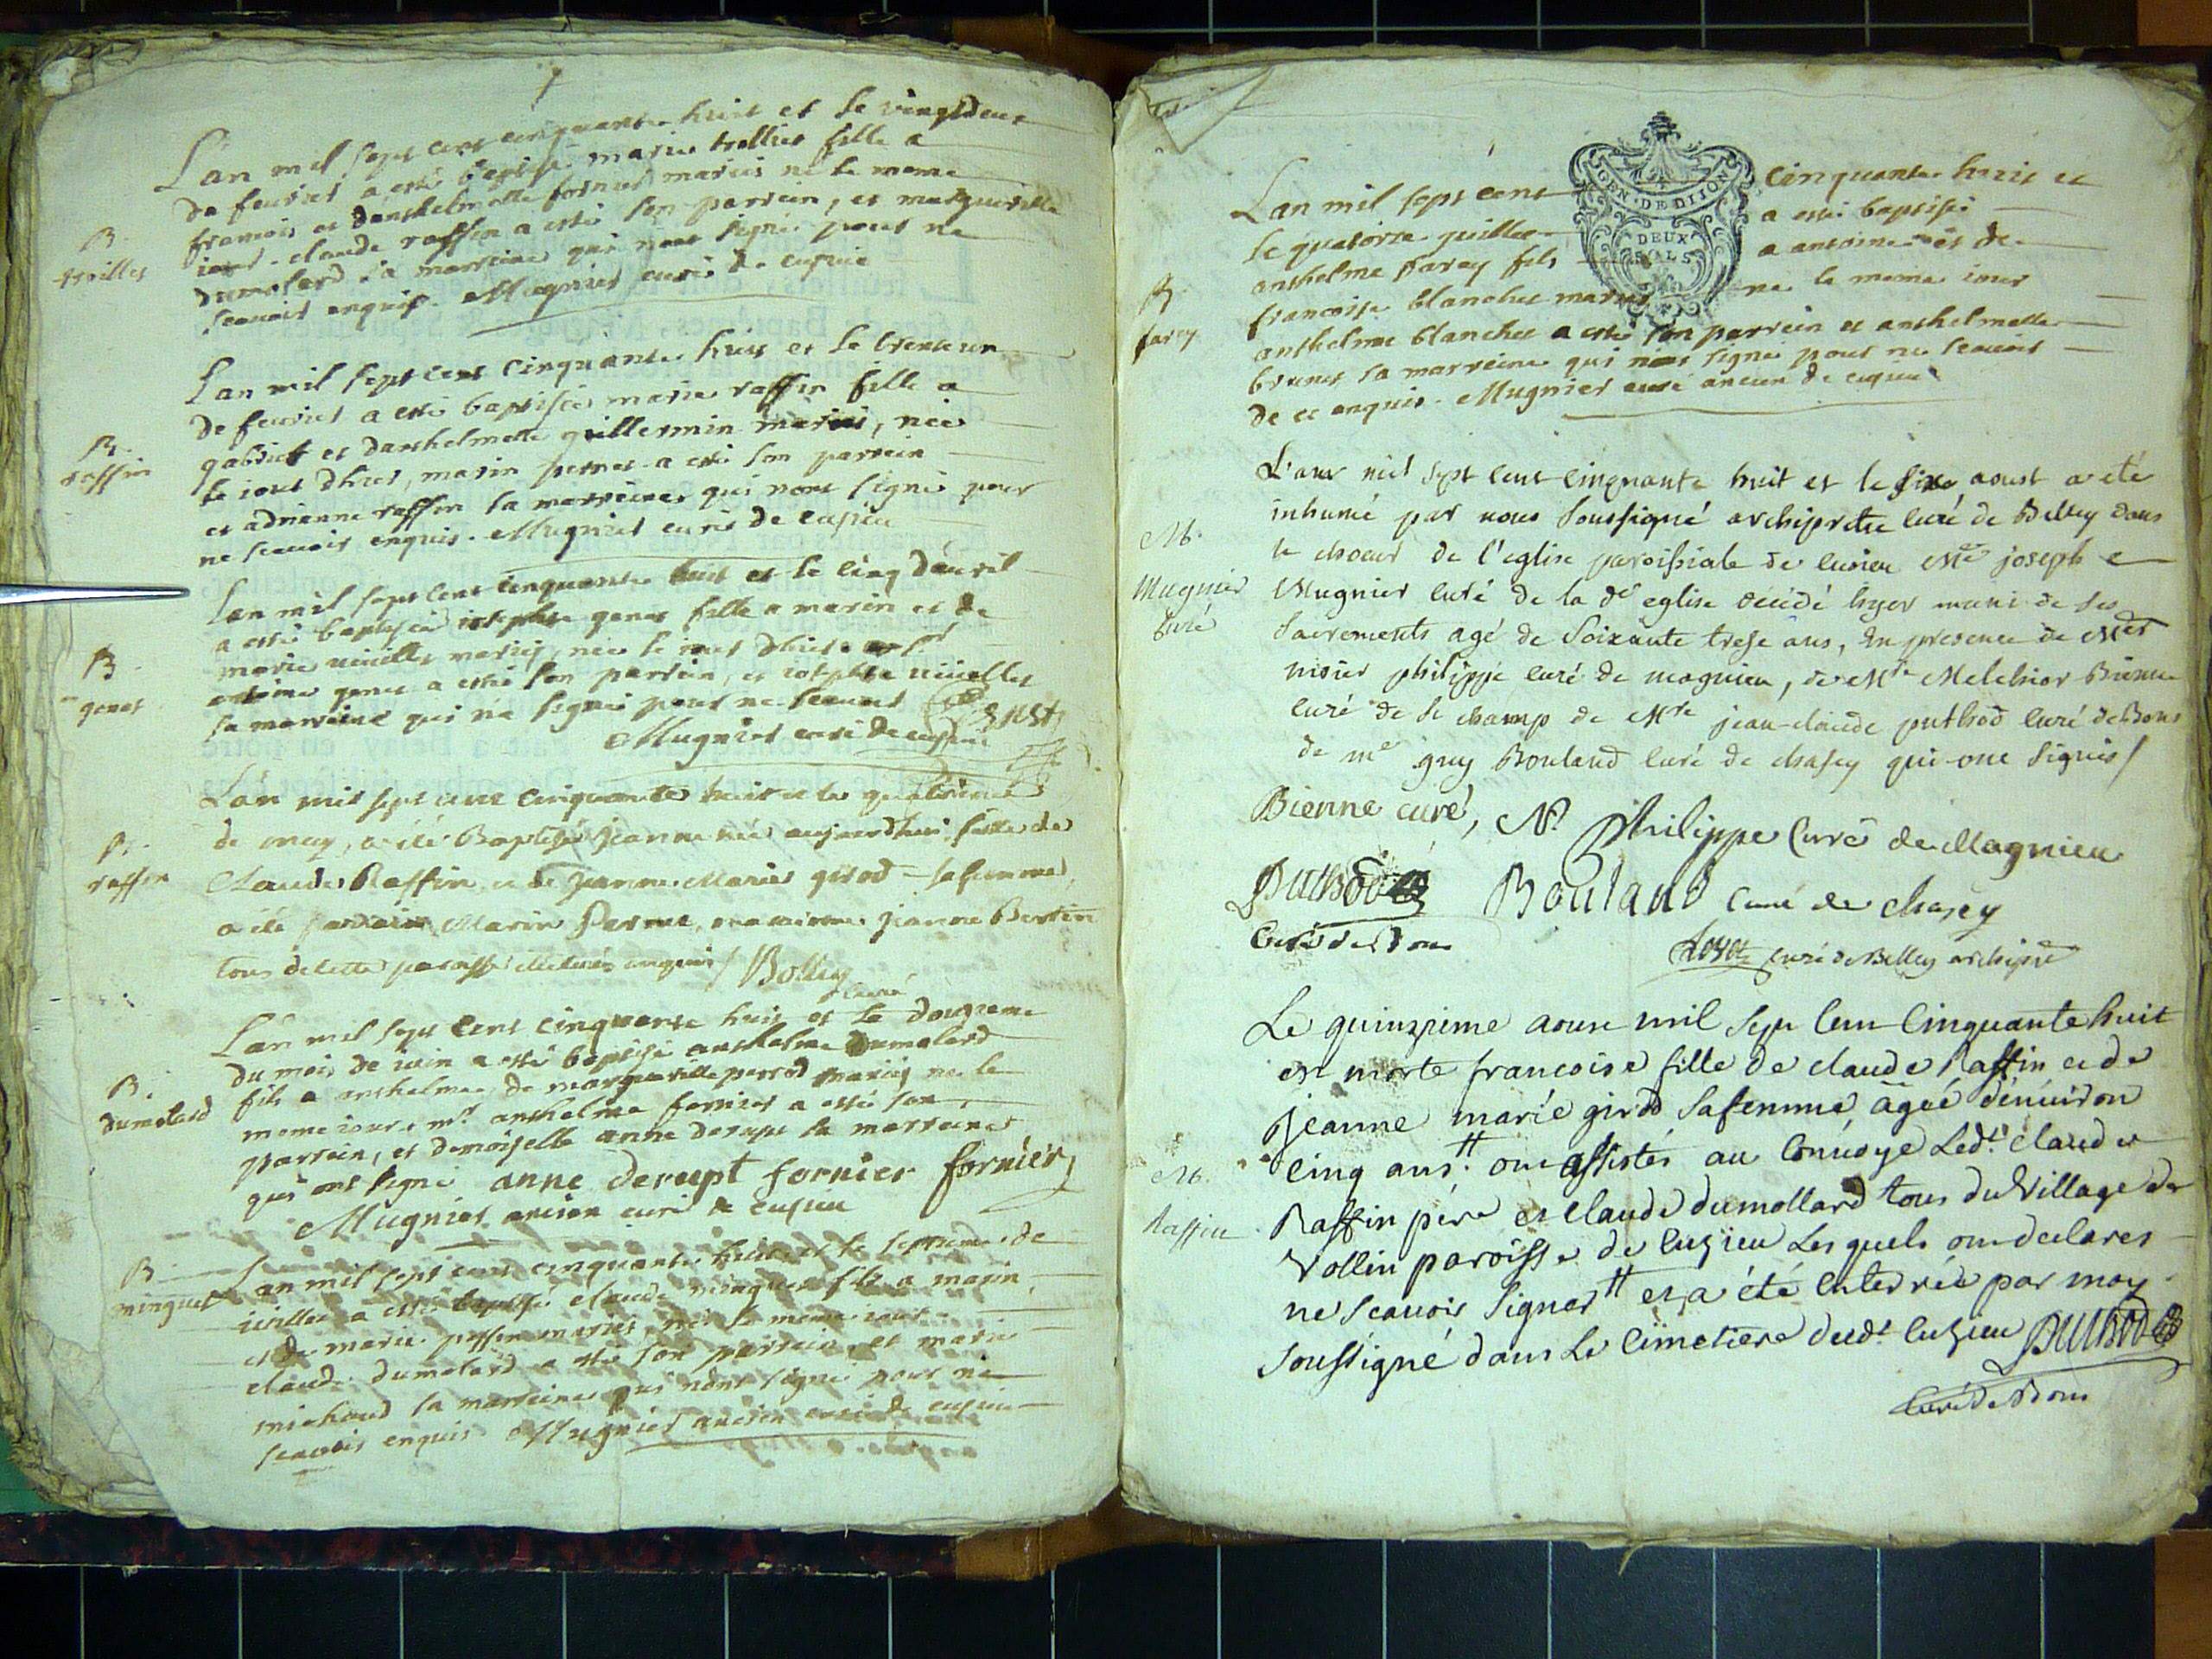 L'an mil sept cent cinquante huit et le vingtdeux
de feurier a esté baptisé marie trollier fille a
francois et danthelmette fornier mariés né le meme
iour. claude raffin a esté son parrein, et marguerite
dumolard sa marreine qui nont signé pour ne
scauoir enquis. Mugnier curé de cusieu
B.
trillier
Lan mil sept cent cinquante huit et le
de feurier a esté baptisée marie raffin fille a
gabriel et danthelmette guillermin mariés, née
le iour dhier, marin pernet a esté son parrein
et adrienne raffin la marreine qui nont signé pour
ne scauoir enquis. Mugnier curé de cusieu
B.
raffin
Lan mil sept cent cinquante huit et le cinq dauril
a esté baptisée iosephte genet fille a marin et de
marie mariés, née le iour dhier
antoine genet a esté son parrein, et iosephte
sa marreine qui na signé pour ne scauoir
Mugnier curé de cusieu
B.
genet
L'an mil sept cent cinquante huit et le quatorzième
de may, a été Baptisée Jeanne née aujourdhui fille de
Claude Raffin et de Jeanne Marie girod sa femme,
a été parrain Marin Pernet, marraine Jeanne Bertin
tous de cette paroisse illiterés enquis / Bolley
curé
B.
raffin
L'an mil sept cent cinquante huit et le douzieme
du mois de iuin a esté baptisé anthelme Dumolard
fils a anthelme de margueritte perrod mariés né le
meme iour, mr. anthelme fornier a esté son
parrein, et demoiselle anne derupt la marreine
qui ont signé anne derupt fornier fornier
Mugnier ancien curé de cusieu
B.
dumolard
Lan mil sept cent cinquante huit et le septieme de
iuillet a esté baptisé claude minguet fils a marin
et de marie mariés, né le meme iour
claude dumolard a esté son parrein, et marie
michoud la marreine qui nont signé pour ne
scauoir enquis Mugnier ancien curé de cusieu
B.
minguet
Lan mil sept cent cinquante huit et
le quatorze iuillet a esté baptisé
anthelme farey fils a antoine et de
francoise blanchet mariés ne le meme iour
anthelme blanchet a esté son parrein et anthelmette
brunet sa marreine qui nont signé pour ne scauoir
de ce enquis. Mugnier curé ancien de cusieu
GEN. DE DIJON
DEUX
SOLS
B.
farey
L'an mil sept cent cinquante huit et le six aoust a été
inhumé par nous soussigné archiprêtre curé de Belley dans
le choeur de l'eglise paroissiale de cusieu Mre joseph
Mugnier curé de la de eglise decédé hyer muni de ses
Sacrements agé de soixante trese ans, en presence de Mes
sieur philippe curé de magnieu, de Mre Melchior Bienne
curé de St champ de Mre jean-claude puthod curé de Bons
de me guy Bouland curé de chasey qui ont signés /
M.
Mugnier
curé
Bienne curé, N. Philippe Curé de Magnieu
Puthod Bouland curé de chasey
Curé de Bons
curé de Belley archiprê
Le quinzieme aoust mil sept cent cinquante huit
est morte francoise fille de claude Raffin et de
Jeanne marie girod sa femme agée d'énuiron
cinq ans.tt ont assistés au conuoye Ledt. claude
Raffin pére et claude dumollard tous du Village de
Vollin paroisse de cuzieu Lesquels ont declarés
ne scauoir signer tt et a été enterrée par moy
soussigné dans le cimetiere dudt cuzieu Puthod
Curé de Bons
M.
Raffin